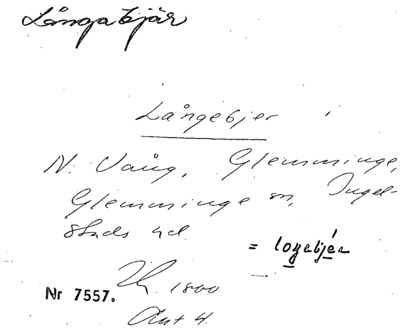 Långabjär
Långebjer
N. Vång, Glemminge,
Glemminge sn, Ingel-
stads hd.
= loŋebjér
1800
Nr 7557.
Akt 4.